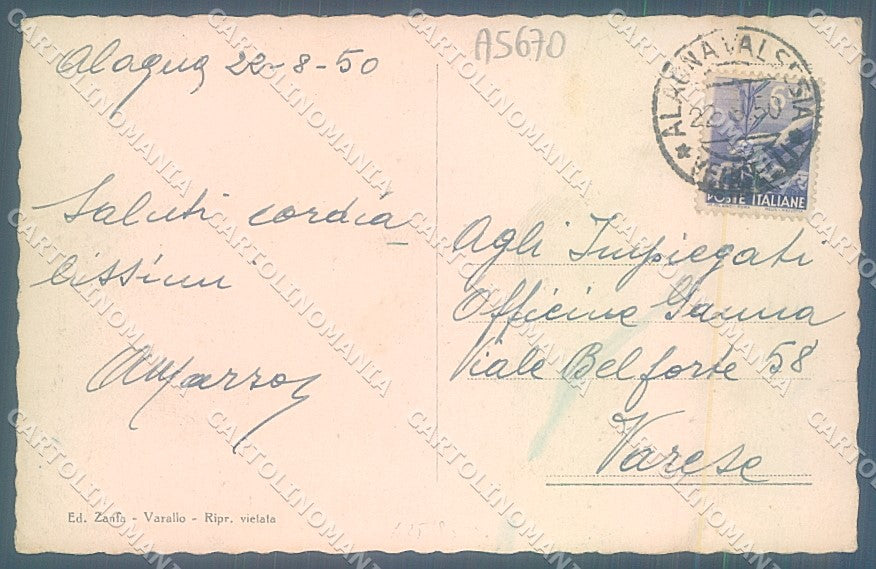 A5670
Alagna 22-8-50
ALAGNA VALSESIA
6
22.8.50
POSTE ITALIANE
Saluti cordia-
lissimi
Agli Impiegati
Officine Ganna
Viale Belforte 58
Varese
Ed. Zanfa - Varallo - Ripr. vietata
CARTOLINOMANIA